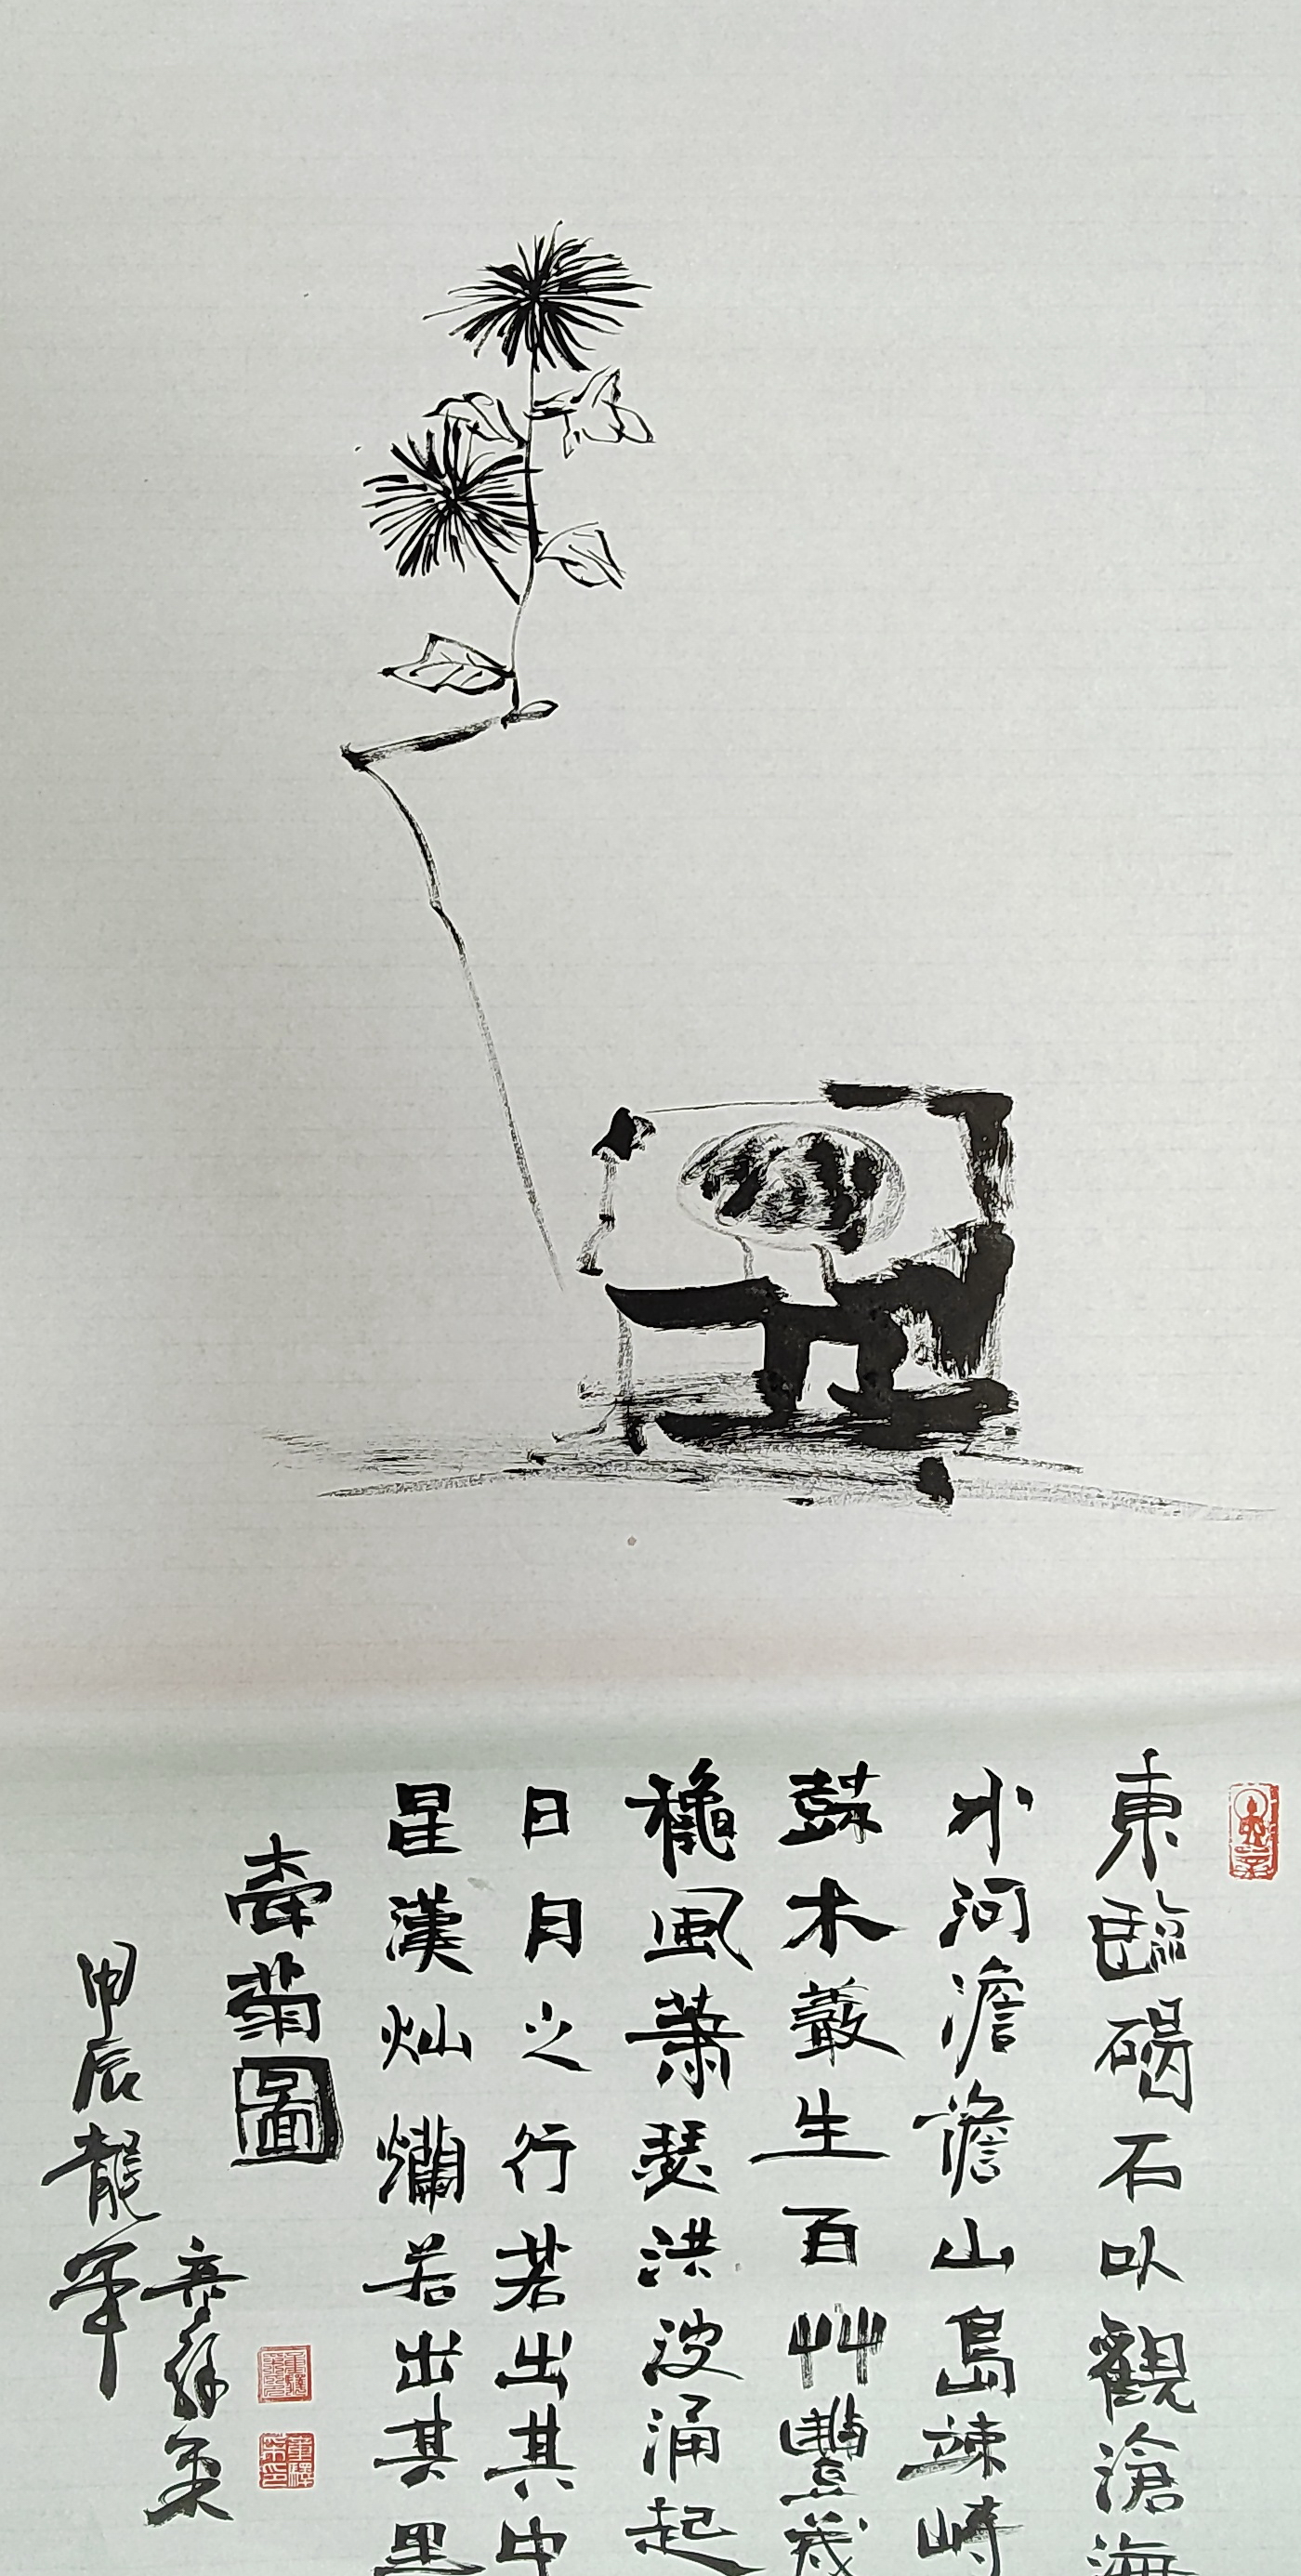 東臨碣石以觀滄海
水河澹澹山島竦峙
樹木叢生百艸豐茂
穐風蕭瑟洪波涌起
日月之行若出其中
星漢灿爛若出其里
壽菊圖
甲辰龍年